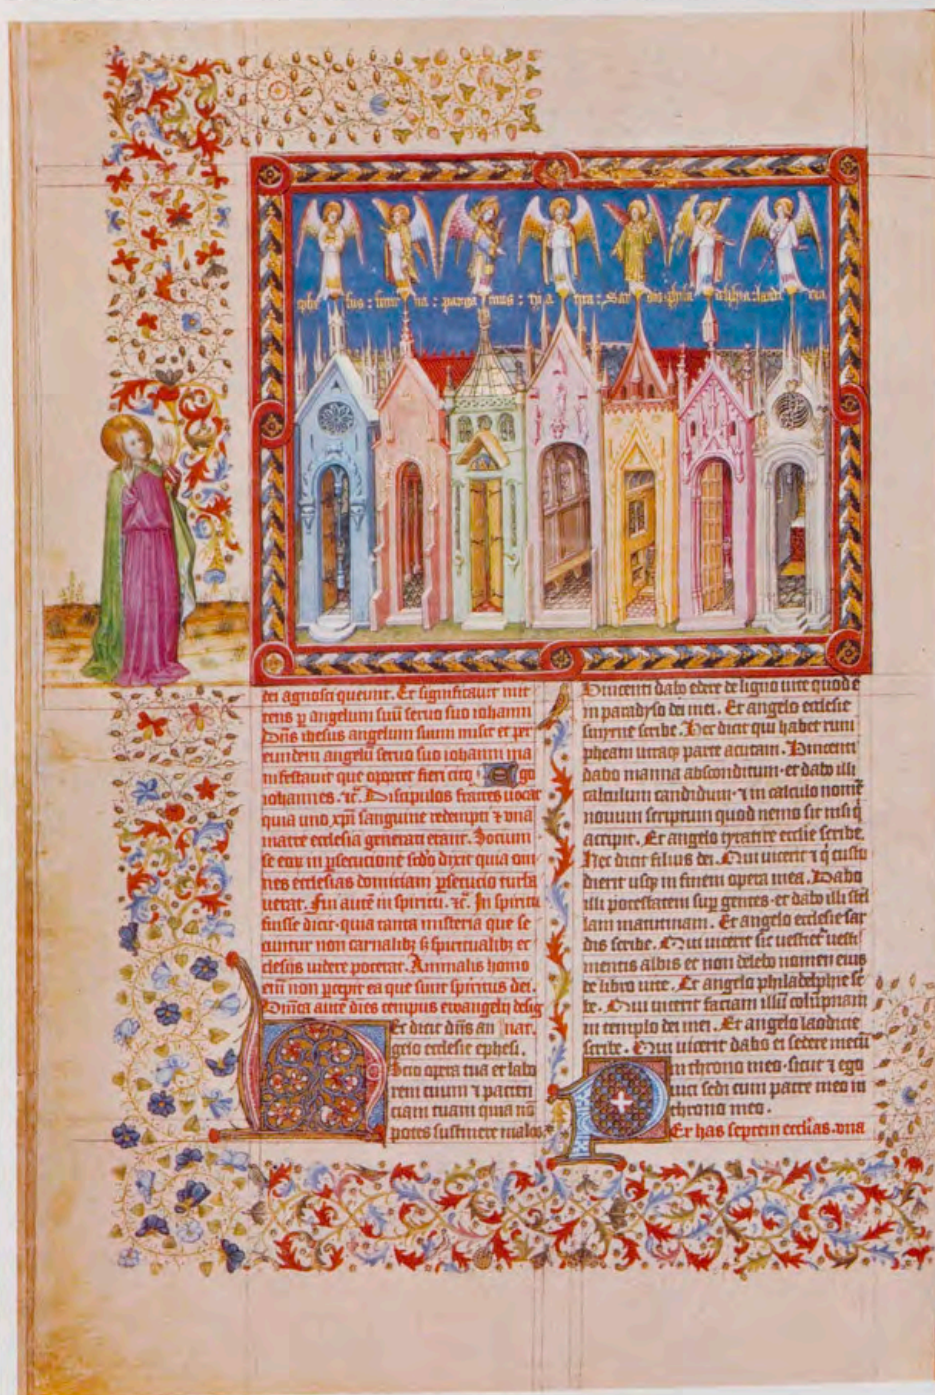 ephe sus : smir na : perga mus : ty a tira : Sar dis phila delphia : laodi cea
dei agnosci queunt. Et significauit mit
tens p angelum suũ seruo suo iohanni
Dñs ihesus angelum suum misit et per
eundem angelũ seruo suo iohanni ma
nifestauit que oportet fieri cito Ego
iohannes ⁊c̃. Discipulos fratres uocat
quia uno xp̃i sanguine redempti ⁊ vna
matre ecclesia generati erant. Socium
se eoꝝ in ꝑsecutione sed'o dixit quia om
nes ecclesias domiciani ꝑsecucio turba
uerat. Fui autẽ in spiritu. ⁊c̃. In spiritu
fuisse dicit quia tanta misteria que se
cuntur non carnalibꝫ ſ spiritualibꝫ et
clesijs uidere poterat. Animalis homo
eni non percipit ea que sunt spiritus dei.
Dñica autẽ dies tempus ewangelij desig
nat.
Et dicit dñs an
gelo ecclesie ephesi.
Scio opera tua et labo
rem tuum ⁊ pacien
ciam tuam quia nõ
potes sustinere malos.
Vincenti dabo edere de ligno uite quod ẽ
in paradyso dei mei. Et angelo ecclesie
smyrne scribe. Hec dicit qui habet rum
pheam utraqꝫ parte acutam. Vincenti
dabo manna absconditum et dabo illi
calculum candidum ⁊ in calculo nomẽ
nouum scriptum quod nemo sit nisi q̇
accipit. Et angelo tyatire ecclie scribe.
Hec dicit filius dei. Qui uicerit ⁊ q̇ custo
dierit usqꝫ in finem opera mea. Dabo
illi potestatem sup̱ gentes et dabo illi stel
lam matutinam. Et angelo ecclesie sar
dis scribe. Qui uicerit sic uestiet' uesti
mentis albis et non delebo nomen eius
de libro uite. Et angelo philadelphie sc̃
be. Qui uicerit faciam illũ columpnam
in templo dei mei. Et angelo laodicie
scribe. Qui uicerit dabo ei sedere mecũ
in throno meo sicut ⁊ ego
uici sedi cum patre meo in
throno meo.
Per has septem eccl'ias vna